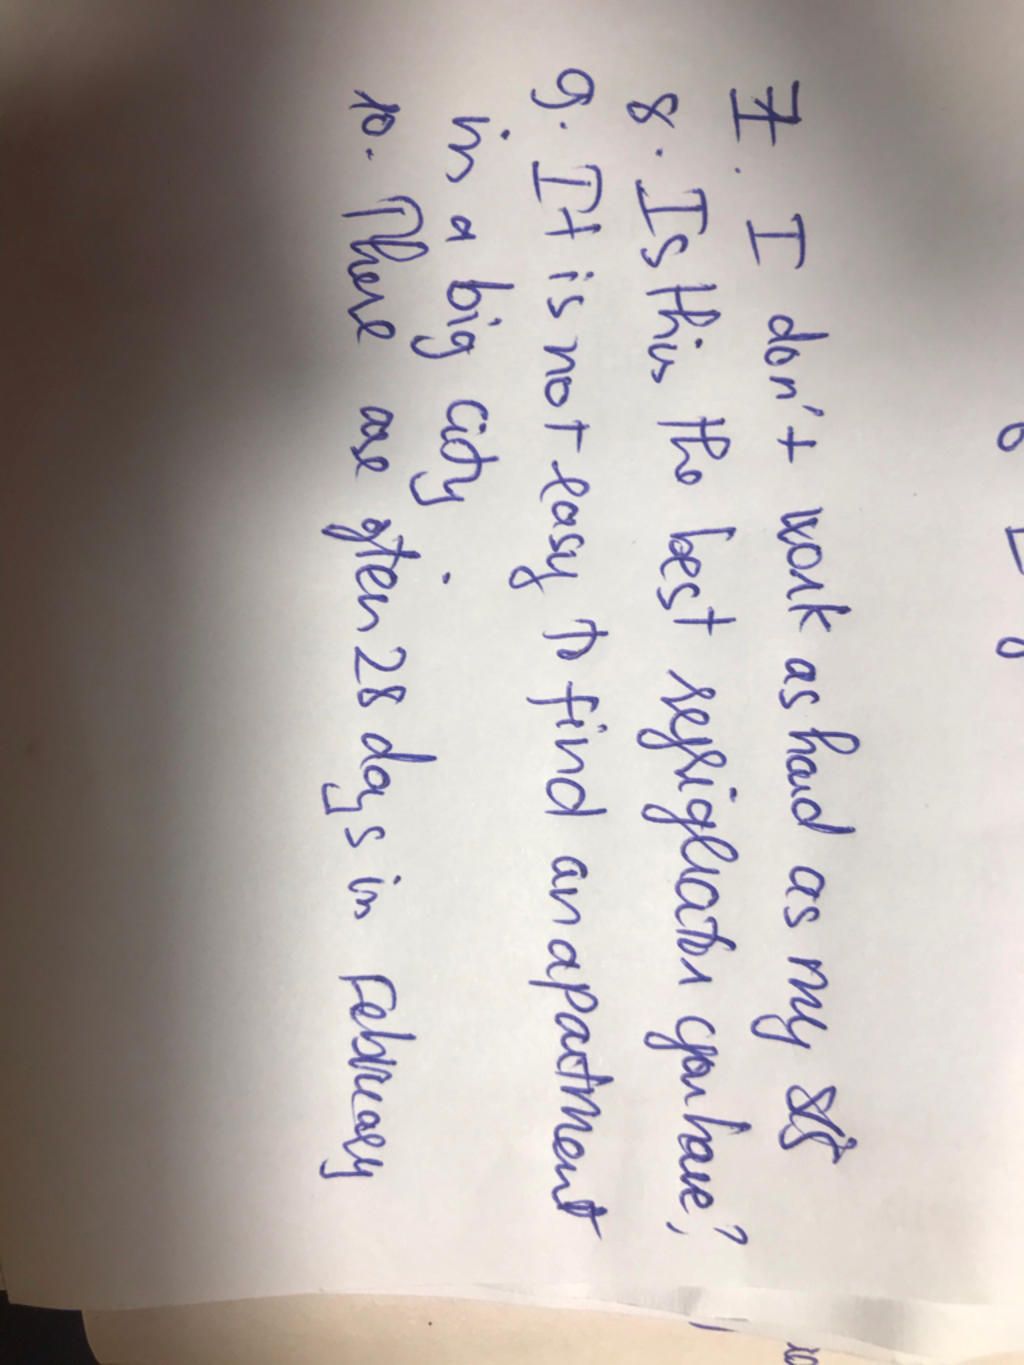 7. I don't work as hard as my
8. Is this the best refrigerator you have?
9. It is not easy to find an apartment
in a big city.
10. There are often 28 days in February